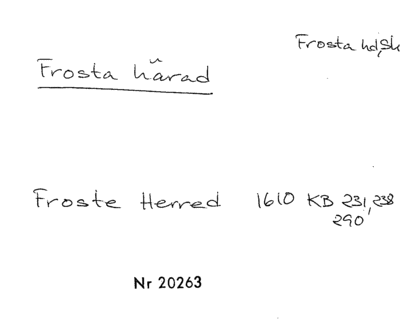 Frosta hd, Sk
Frosta härad
Froste Herred 1610 KB 231, 238
290
Nr 20263